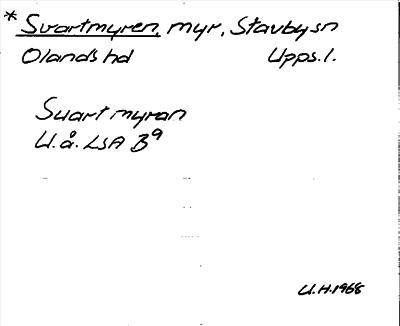 * Svartmyren, myr, Stavby sn
Olands hd Upps. l.
Svartmyran
U. å. LSA B9
U.H. 1968